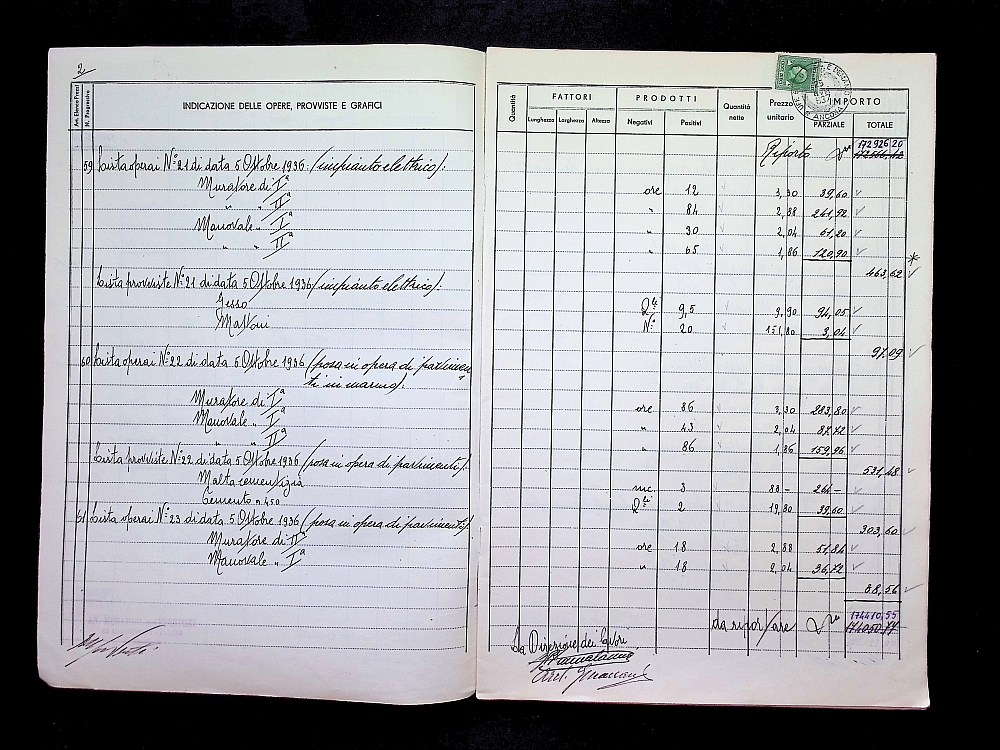 2
Art. Elenco Prezzi
N. Progressivo
INDICAZIONE DELLE OPERE, PROVVISTE E GRAFICI
59 Lista operai N° 21 di data 5 Ottobre 1936 (impianto elettrico):
Muratore di Iª
" " IIª
Manovale " Iª
" " IIª
Lista provviste N° 21 di data 5 Ottobre 1936 (impianto elettrico):
Gesso
Mattoni
60 Lista operai N° 22 di data 5 Ottobre 1936 (posa in opera di pavimen-
ti in marmo):
Muratore di Iª
Manovale " Iª
" " IIª
Lista provviste N° 22 di data 5 Ottobre 1936 (posa in opera di pavimenti):
Malta cementizia
Cemento " 450
61 Lista operai N° 23 di data 5 Ottobre 1936 (posa in opera di pavimenti)
Muratore di IIª
Manovale " Iª
Quantità
FATTORI
Lunghezza Larghezza Altezza
PRODOTTI
Negativi Positivi
Quantità nette
Prezzo unitario
IMPORTO
PARZIALE TOTALE
ANCONA
Riporto 172926,20
ore 12 3,30 39,60
" 84 2,88 241,92
" 30 2,04 61,20
" 65 1,86 120,90
463,62
Q.li 9,5 9,90 94,05
N° 20 151,80 3,04
97,09
ore 86 3,30 283,80
" 43 2,04 87,72
" 86 1,86 159,96
531,48
mc. 3 88 - 264 -
Q.li 2 19,80 39,60
303,60
ore 18 2,88 51,84
" 18 2,04 36,72
88,56
da riportare 174410,55
174050,77
La Direzione dei lavori